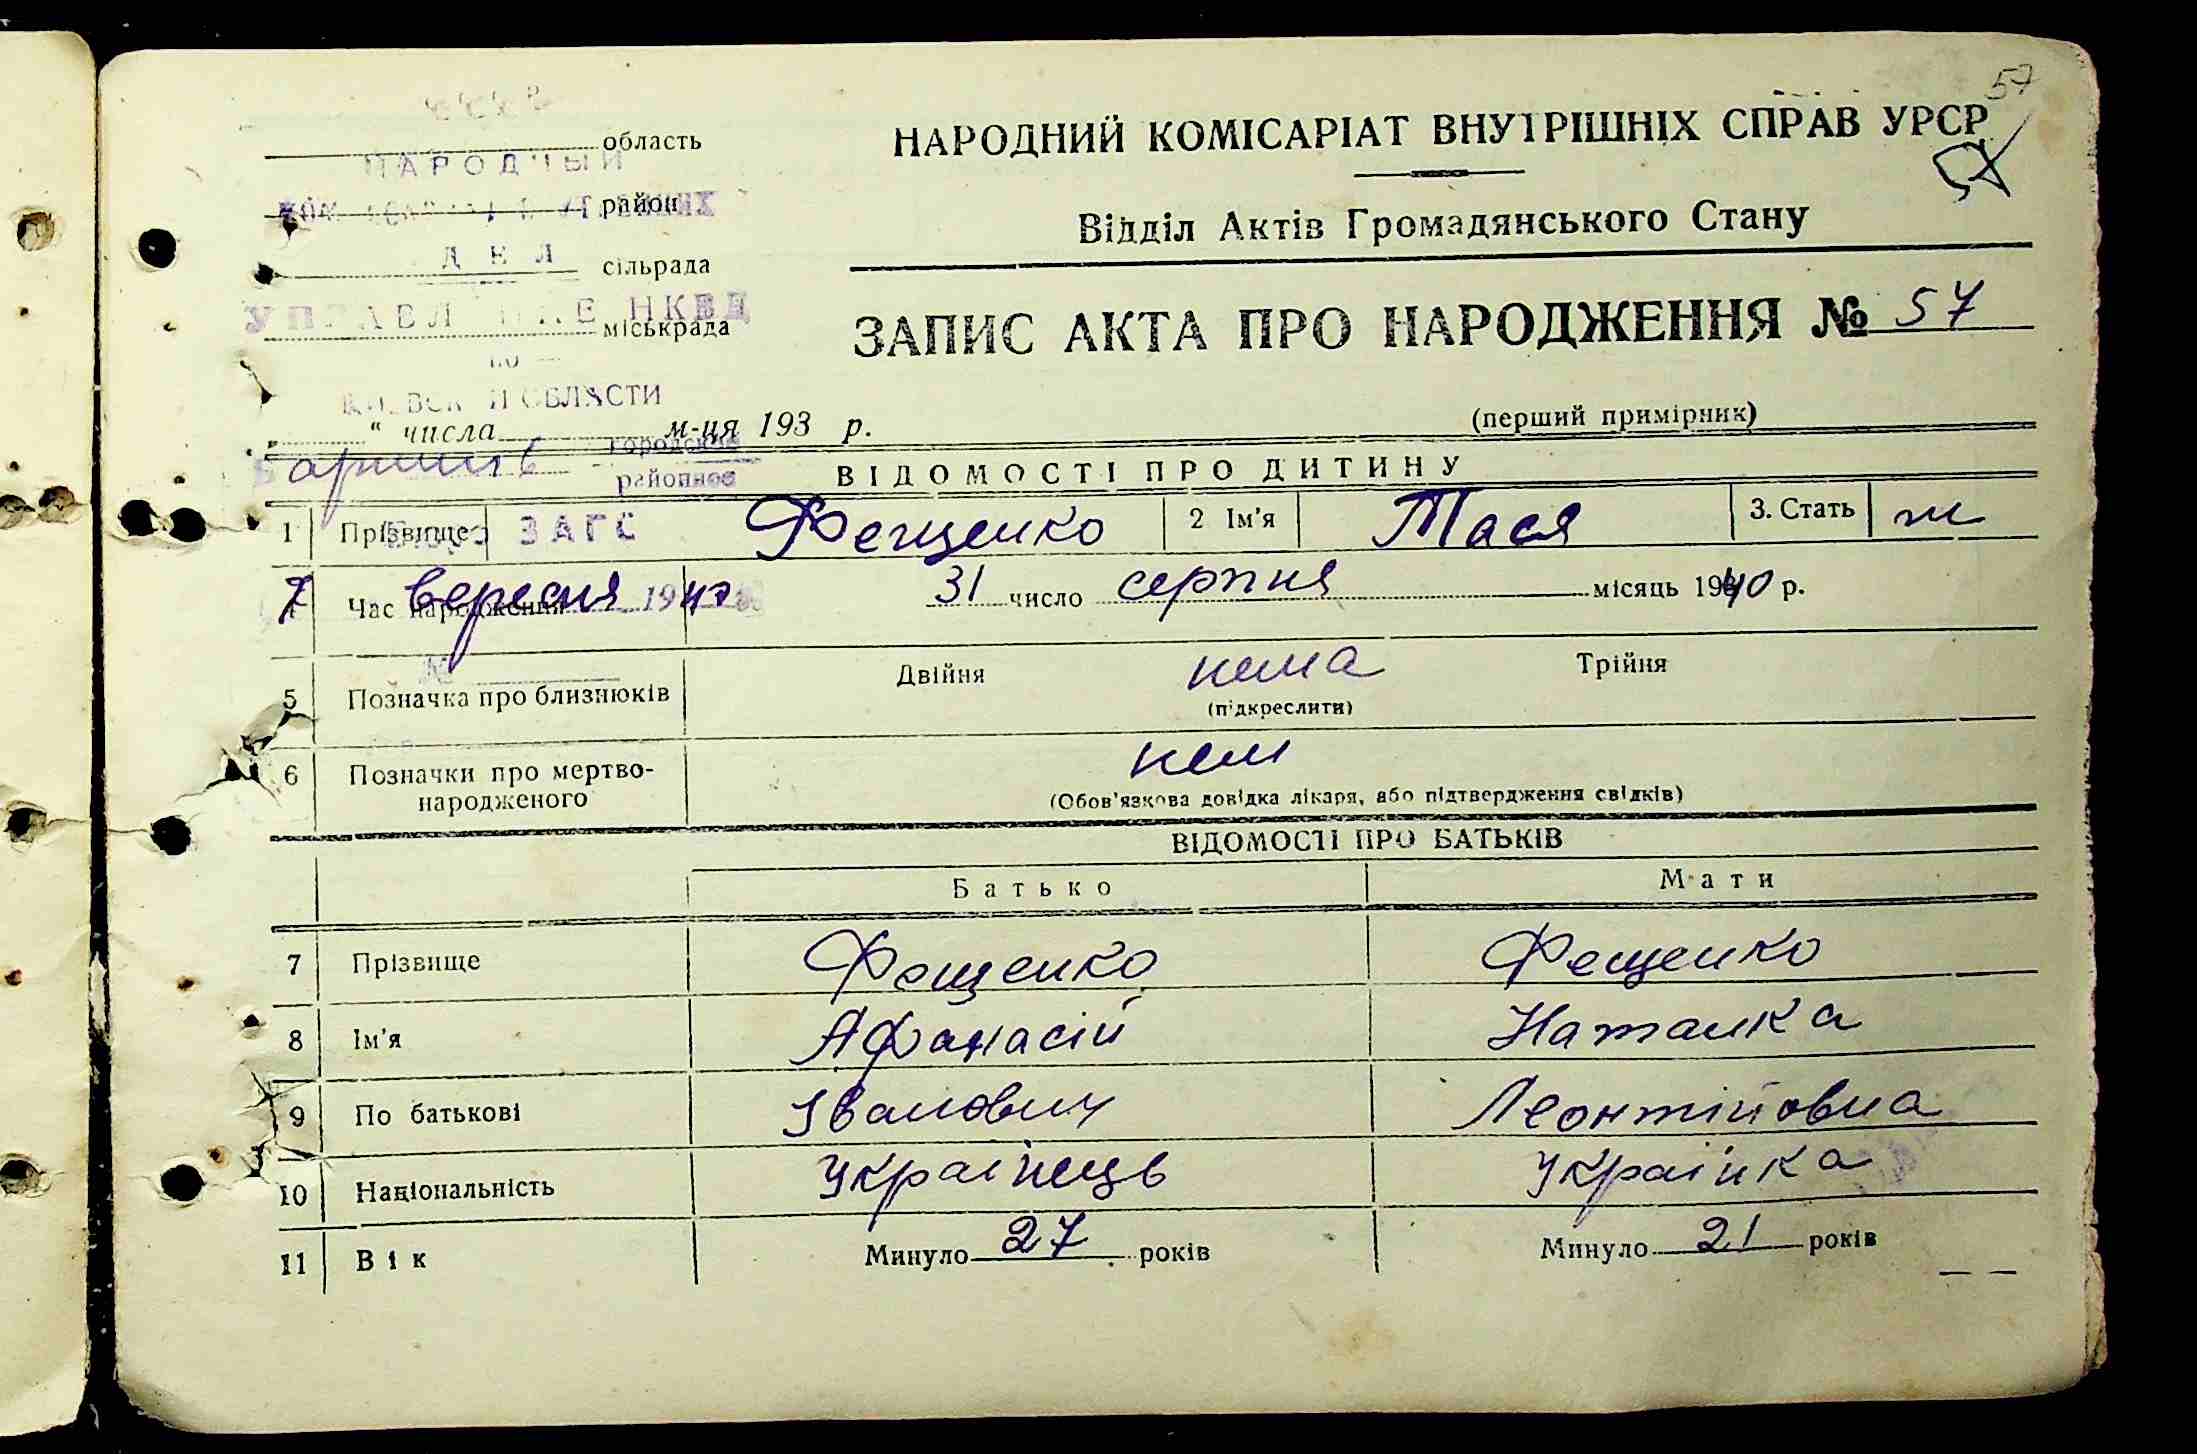 57
СССР
область
НАРОДНЫЙ
район
ДЕЛ
сільрада
УПРАВЛЕНИЕ НКВД
міськрада
по
КИЕВСКОЙ ОБЛАСТИ
НАРОДНИЙ КОМІСАРІАТ ВНУТРІШНІХ СПРАВ УРСР
Відділ Актів Громадянського Стану
ЗАПИС АКТА ПРО НАРОДЖЕННЯ № 57
(перший примірник)
„ “ числа м-ця 193 р.
городское
районное
ВІДОМОСТІ ПРО ДИТИНУ
1 Прізвище Фещенко 2 Ім'я Тася 3. Стать ж
Бюро ЗАГС
7 вересня 1940
Час народження 31 число серпня місяць 1940 р.
№
5 Позначка про близнюків Двійня нема Трійня
(підкреслити)
6 Позначки про мертво-
народженого нем
(Обов'язкова довідка лікаря, або підтвердження свідків)
ВІДОМОСТІ ПРО БАТЬКІВ
Батько Мати
7 Прізвище Фещенко Фещенко
8 Ім'я Афанасій Наталка
9 По батькові Іванович Леонтійовна
10 Національність Українець Українка
11 Вік Минуло 27 років Минуло 21 років